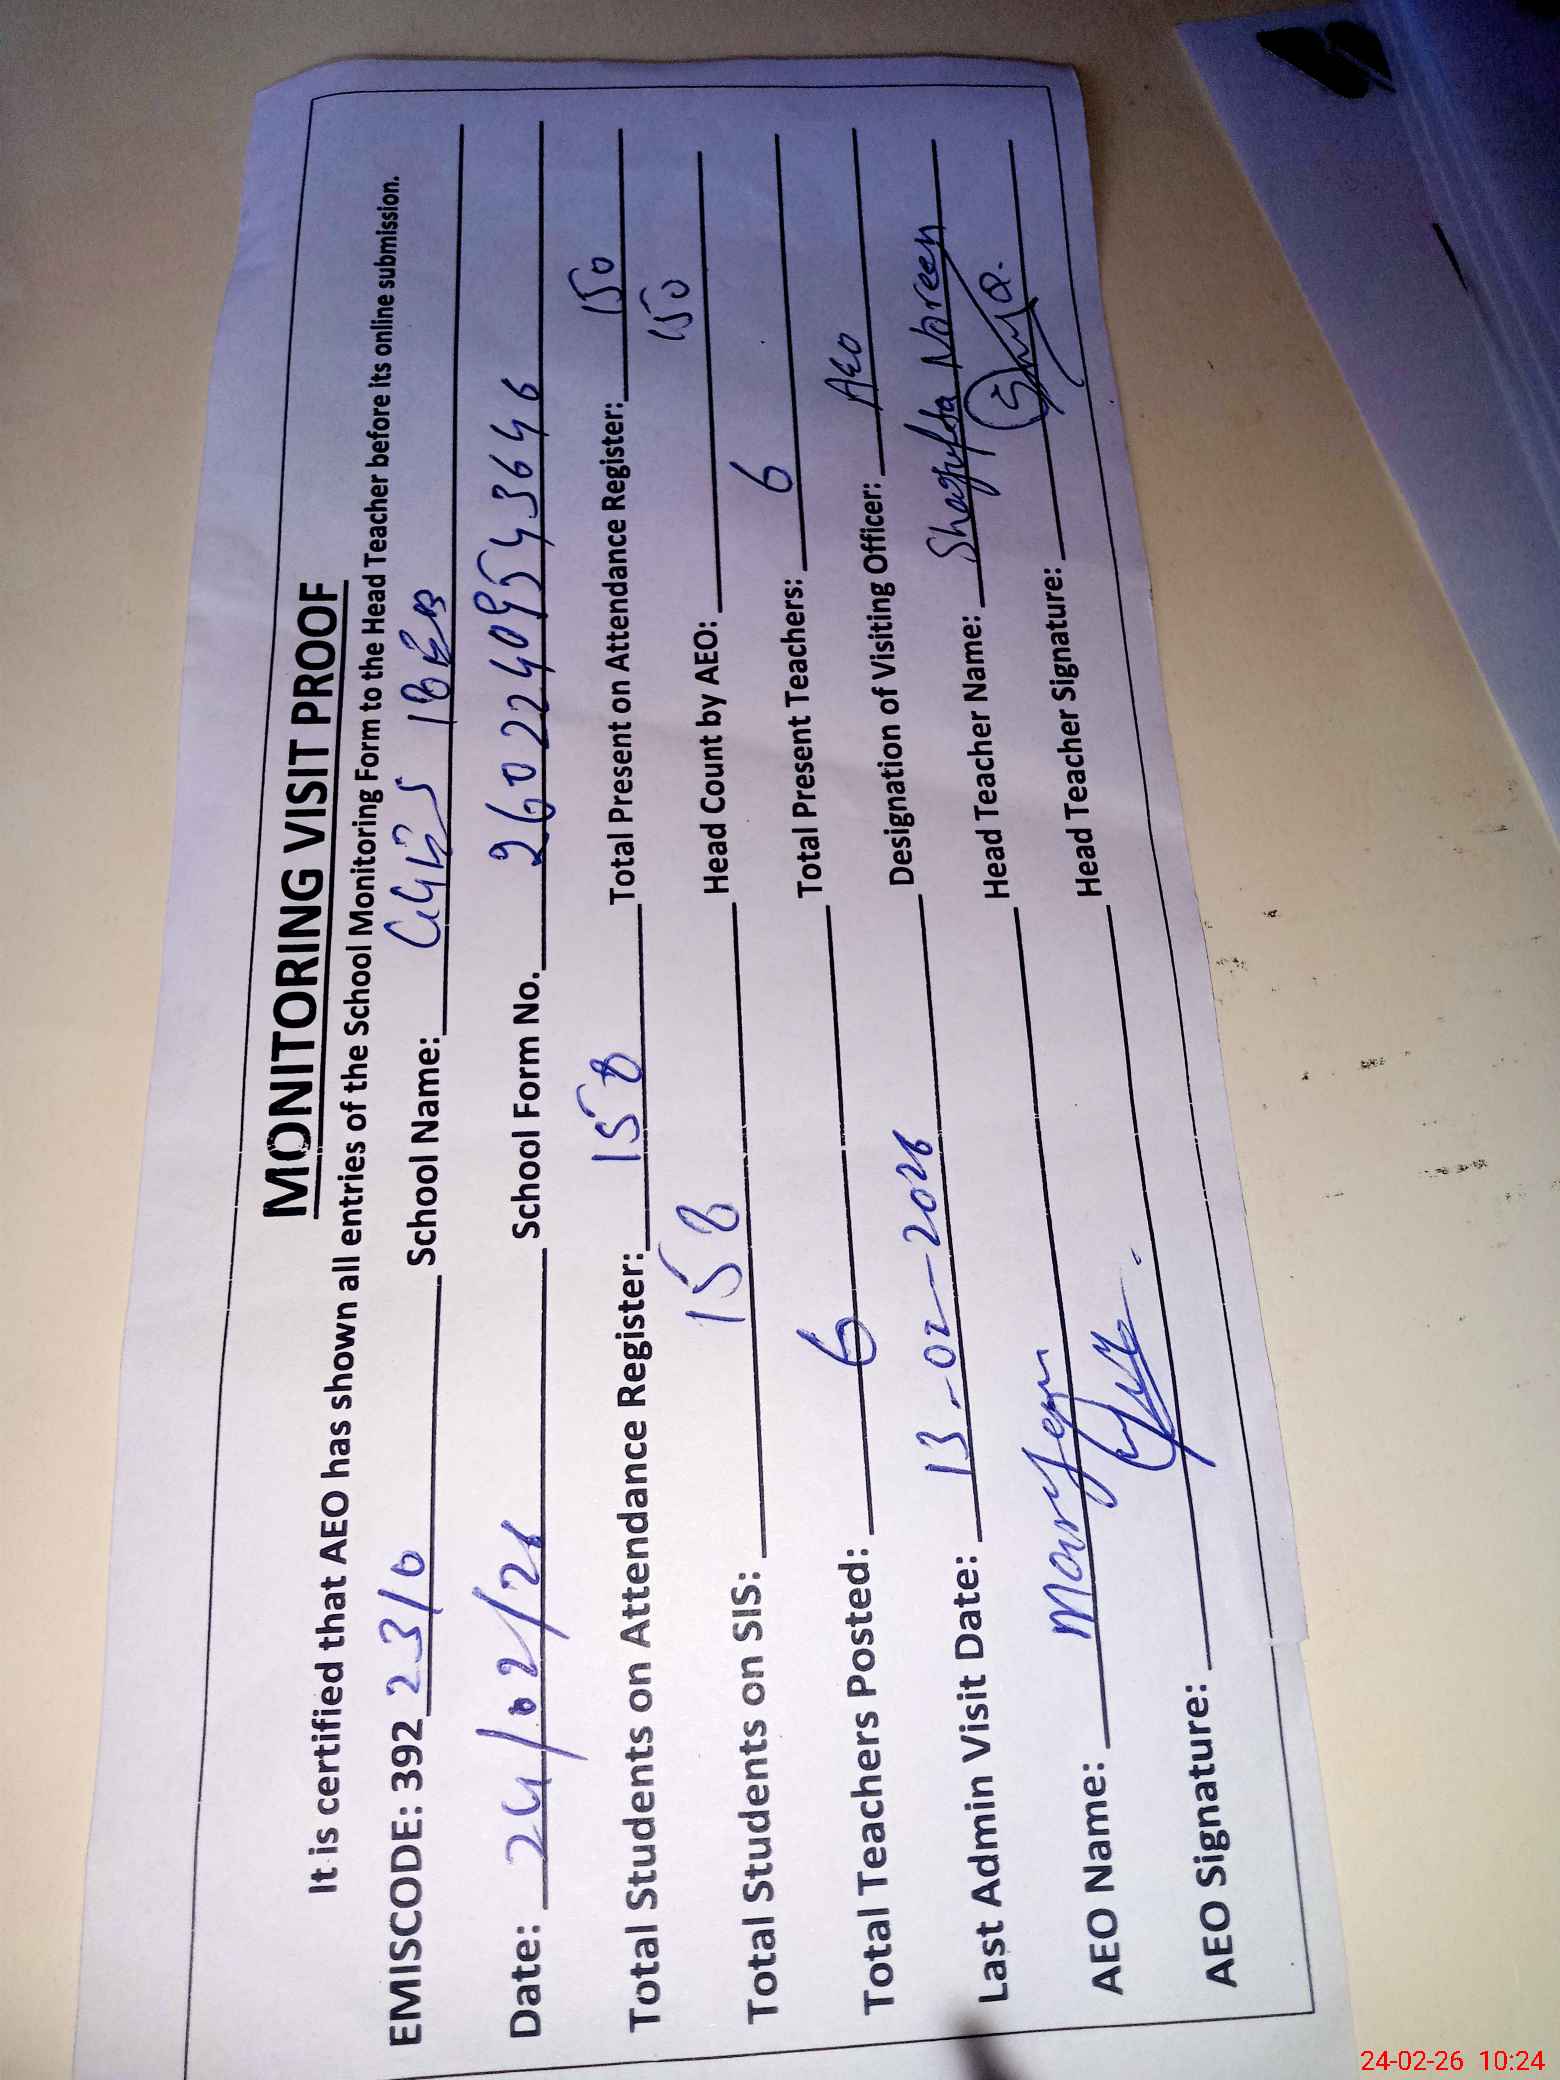 MONITORING VISIT PROOF
It is certified that AEO has shown all entries of the School Monitoring Form to the Head Teacher before its online submission.
EMISCODE: 392 2310 School Name: GGES 18EB
Date: 24/02/26 School Form No. 26022409543646
Total Students on Attendance Register: 158 Total Present on Attendance Register: 150
Total Students on SIS: 158 Head Count by AEO: 150
Total Teachers Posted: 6 Total Present Teachers: 6
Last Admin Visit Date: 13-02-2026 Designation of Visiting Officer: AEO
AEO Name: Maryam Head Teacher Name: Shagufta Noreen
AEO Signature: Head Teacher Signature:
24-02-26 10:24